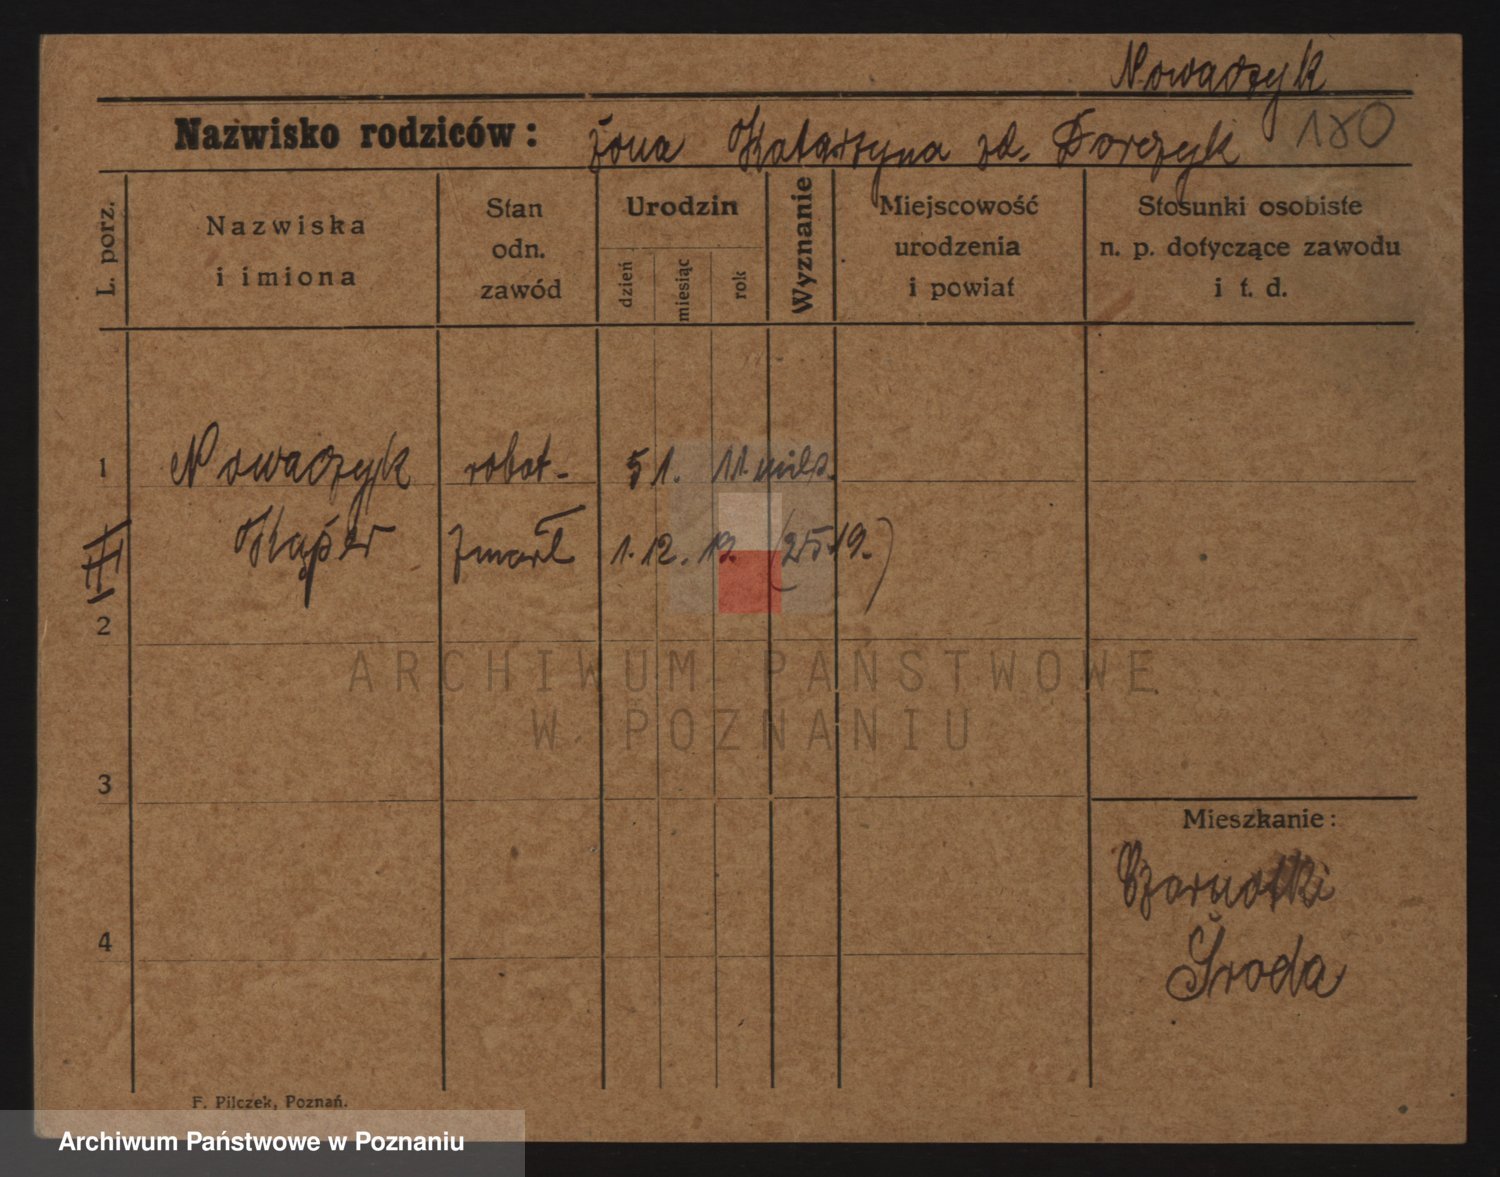 Nowaczyk
Nazwisko rodziców: żona Katarzyna zd. Dorczyk 180
L. porz.
Nazwiska i imiona
Stan odn. zawód
Urodzin
dzień
miesiąc
rok
Wyznanie
Miejscowość urodzenia i powiat
Stosunki osobiste n. p. dotyczące zawodu i t. d.
1 Nowaczyk robot. 51. 11.
Kasper zmarł 1.12.19. (25.19.)
2
ARCHIWUM PAŃSTWOWE
W POZNANIU
3
Mieszkanie:
Czarnotki
4
Środa
F. Pilczek, Poznań.
Archiwum Państwowe w Poznaniu